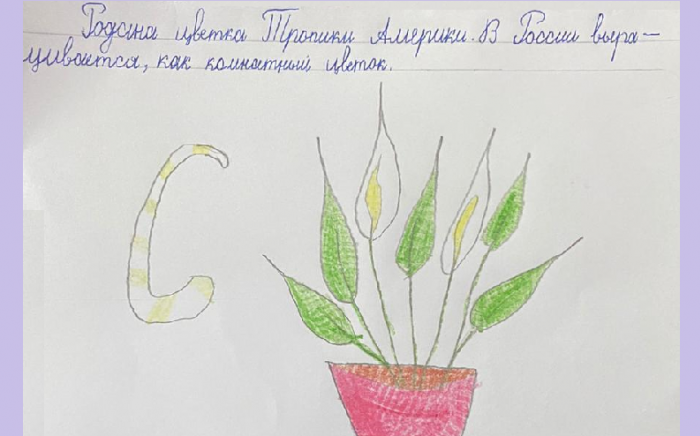 Родина цветка Тропики Америки. В России выра-
щивается, как комнатный цветок.
С